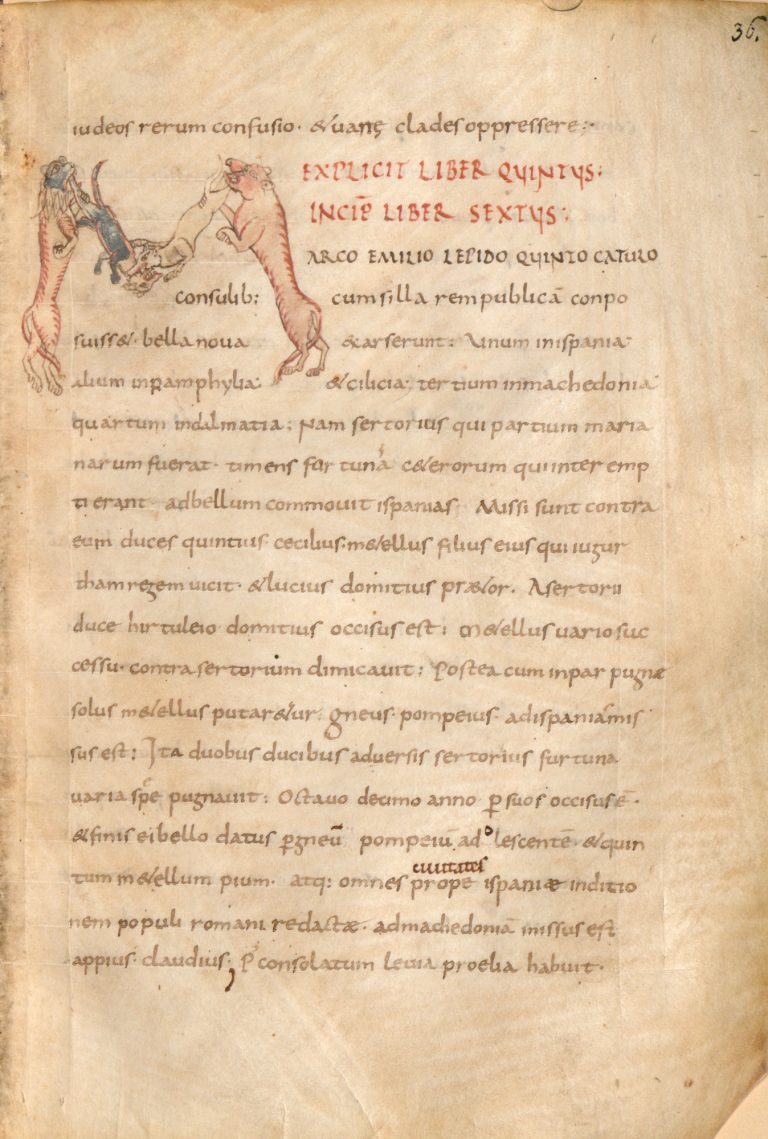 36.
iudeos rerum confusio · & uanę clades oppressere;
EXPLICIT LIBER QUINTUS:
INCIP̄ LIBER SEXTUS:
MARCO EMILIO LEPIDO QUINTO CATULO
consulib: cum silla rem publicā conpo
suiss&· bella noua & arserunt: Unum in ispania
alium in pamphylia & cilicia; tertium in machedonia
quartum in dalmatia; Nam sertorius qui partium maria
narum fuerat· timens furtunā c&erorum qui inter emp
ti erant· ad bellum commouit ispanias· Missi sunt contra
eum duces quintius· cecilius· m&ellus filius eius qui iugur
tham regem uicit· & lucius domitius pr&or· A sertorii
duce hirtuleio domitius occisus est: m&ellus uario suc
cessu· contra sertorium dimicauit: Postea cum inpar pugnæ
solus m&ellus putar&ur· gneus pompeius· ad ispanias mis
sus est: Ita duobus ducibus aduersis sertorius furtuna
uaria spe pugnauit: Octauo decimo anno ꝑ suos occisus ē·
& finis ei bello datus ꝑ gneū pompeiū adolescentē· & quin
tum m&ellum pium· atq: omnes prope ciuitates ispaniæ in ditio
nem populi romani redactæ· ad madiedoniā missus est
appius· claudius; P̄ consolatum leuia proelia habuit·